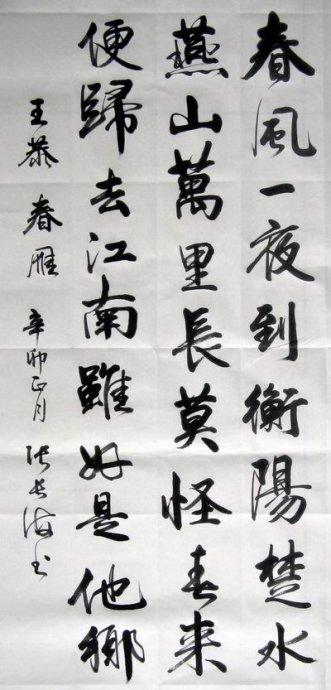 春風一夜到衡陽楚水
燕山萬里長莫怪春来
便歸去江南雖好是他鄉
王恭 春雁 辛卯正月 张长海书